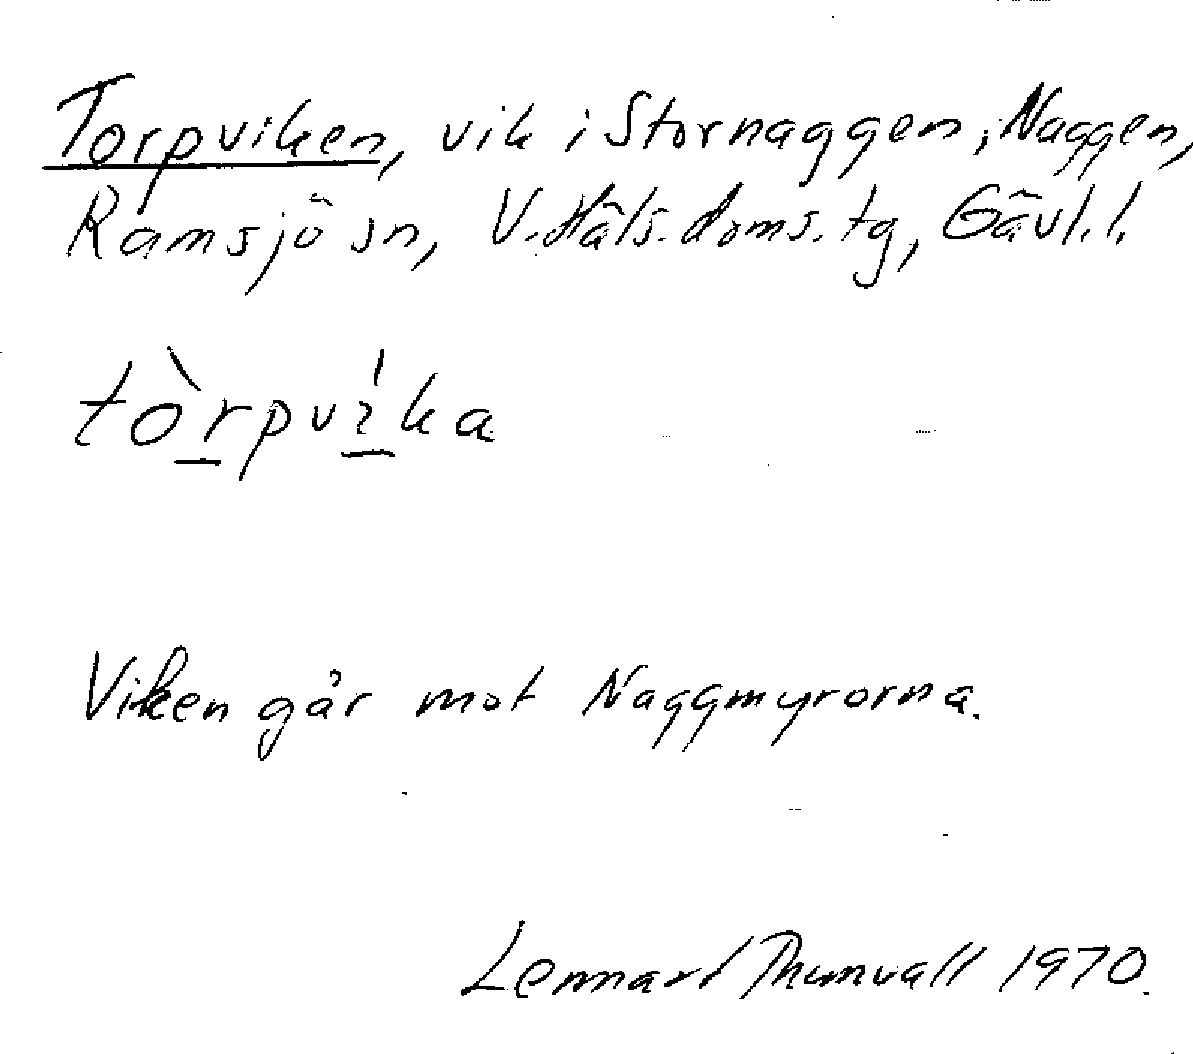 Torpviken, vik i Stornaggen, Naggen,
Ramsjö sn, V. Häls. doms. tg, Gävl. l.
tòrpvika
Viken går mot Naggmyrorna.
Lennart Thunvall 1970.